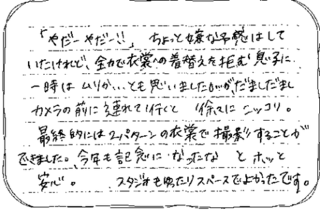 「やだーやだー!!」 ちょっと嫌な予感はして
いたけれど、全力で衣裳への着替えを拒む息子に
一時はムリか…とも思いましたがだましだまし
カメラの前に連れて行くと 徐々にニッコリ。
最終的には2パターンの衣裳で撮影することが
できました。今年も記念になったな とホッと
安心。 スタジオもゆったりスペースでよかったです。